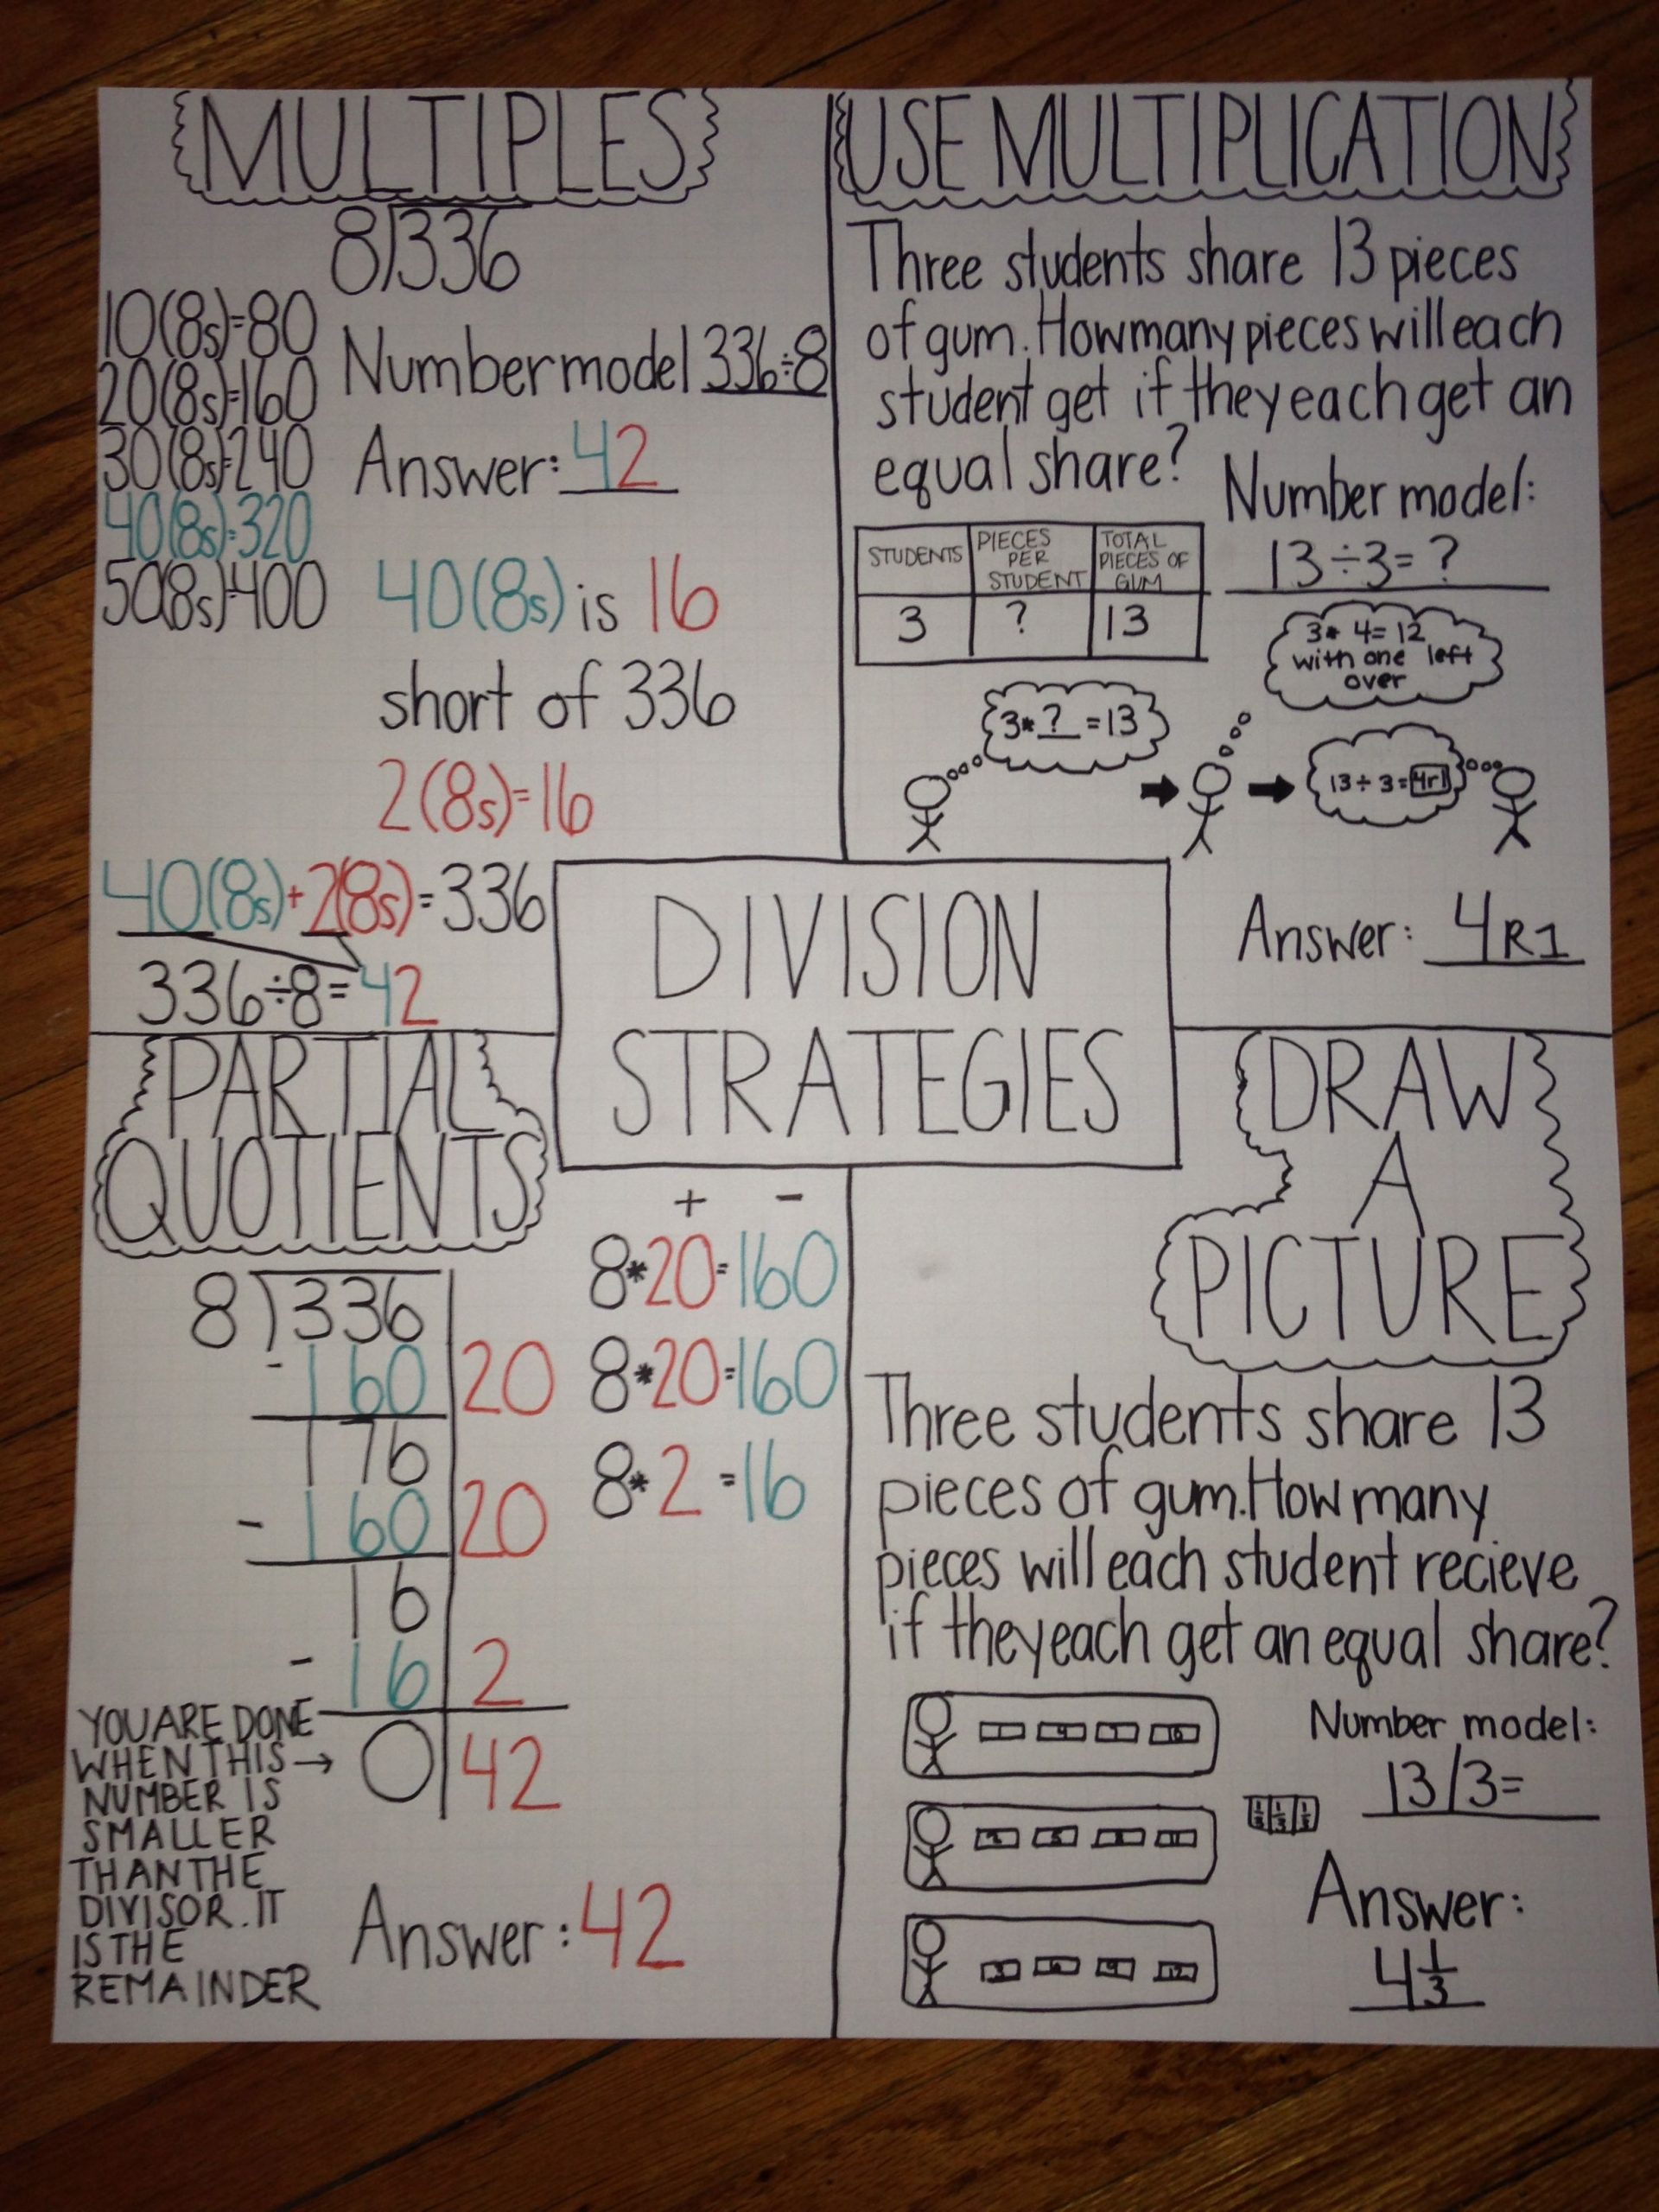 MULTIPLES
8)336
10(8s)=80
20(8s)=160
30(8s)=240
40(8s)=320
50(8s)=400
Number model 336÷8
Answer: 42
40(8s) is 16
short of 336
2(8s)=16
40(8s)+2(8s)=336
336÷8=42
USE MULTIPLICATION
Three students share 13 pieces
of gum. How many pieces will each
student get if they each get an
equal share?
Number model:
13÷3=?
STUDENTS
PIECES
PER
STUDENT
TOTAL
PIECES OF
GUM
3 ? 13
3* ? =13
3* 4=12
with one left
over
13÷3=4r1
Answer: 4R1
DIVISION
STRATEGIES
PARTIAL
QUOTIENTS
8)336
-160 20
176
-160 20
16
-16 2
0 42
+ -
8*20=160
8*20=160
8*2=16
YOU ARE DONE
WHEN THIS →
NUMBER IS
SMALLER
THAN THE
DIVISOR. IT
IS THE
REMAINDER
Answer: 42
DRAW
A
PICTURE
Three students share 13
pieces of gum. How many
pieces will each student recieve
if they each get an equal share?
1 4 7 10
2 5 8 11
3 6 9 12
1/3 1/3 1/3
Number model:
13/3=
Answer:
4 1/3